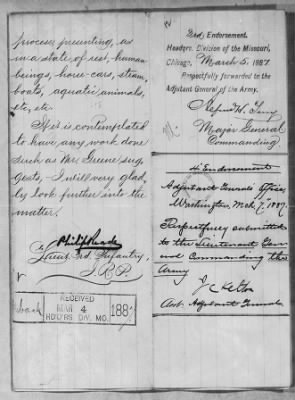 process, presenting, as
in a state of rest, human
beings, horse cars, steam
boats, aquatic animals,
etc, etc.
If it is contemplated
to have any work done
such as Mr. Greene sug
gests, I will very glad
ly look further into the
matter.
Philip Reade
1st Lieut. 3rd. Infantry,
I. R. P.
RECEIVED
back
MAR 4 1887
HD'QRS DIV. MO.
2nd. Endorsement.
Headqrs. Division of the Missouri,
Chicago, March 5, 1887
Respectfully forwarded to the
Adjutant General of the Army.
Alfred H. Terry
Major General
Commanding
4 Endorsement
Adjutant General's Office,
Washington, Mch. 7, 1887.
Respectfully submitted
to the Lieutenant Gen
eral Commanding the
Army
J C Kelton
Asst. Adjutant General